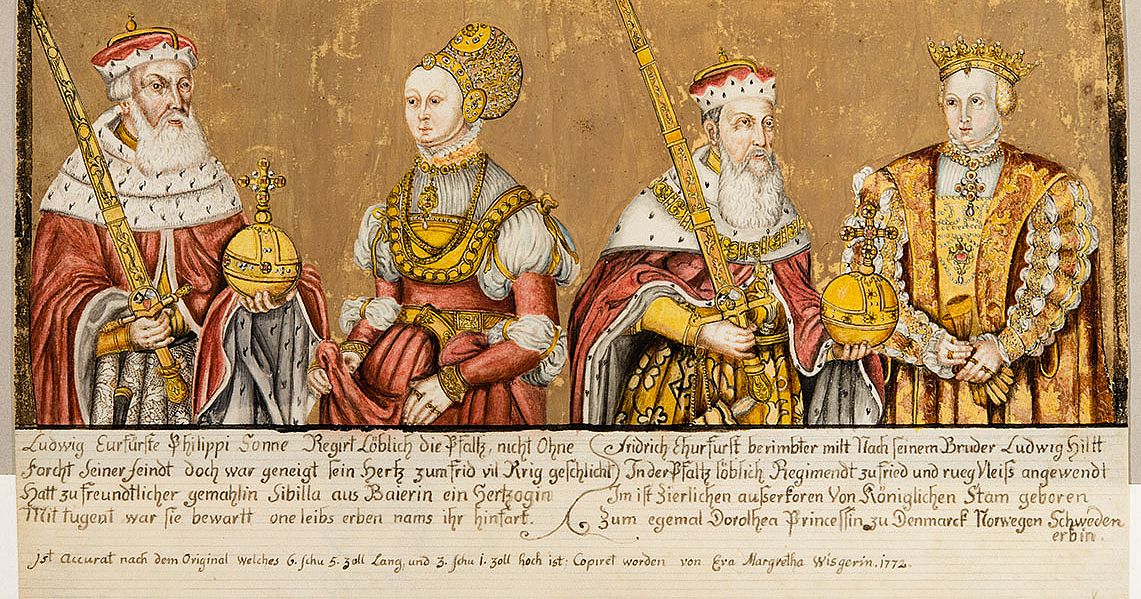 Ludwig Curfürste Philippi Sonne Regirt Löblich die Pfaltz, nicht Ohne
Forcht seiner feindt doch war geneigt sein Hertz zum frid vil Krig geschlicht
Hatt zu freundtlicher gemahlin Sibilla aus Baierin ein Hertzogin
Mit tugent war sie bewartt one leibs erben nams ihr hinfart.
Fridrich Churfurst berimbter milt Nach seinem Bruder Ludwig hiltt
In der Pfaltz löblich Regimendt zu fried und rueg vleiß angewendt
Im ist Zierlichen außerkoren Von Königlichen Stam geboren
Zum egemal Dorothea Princessin zu Denmarck Norwegen Schweden
erbin.
Ist Accurat nach dem Original welches 6. schu 5. zoll Lang, und 3. schu 1. zoll hoch ist: Copiret worden von Eva Margretha Wisgerin. 1772.